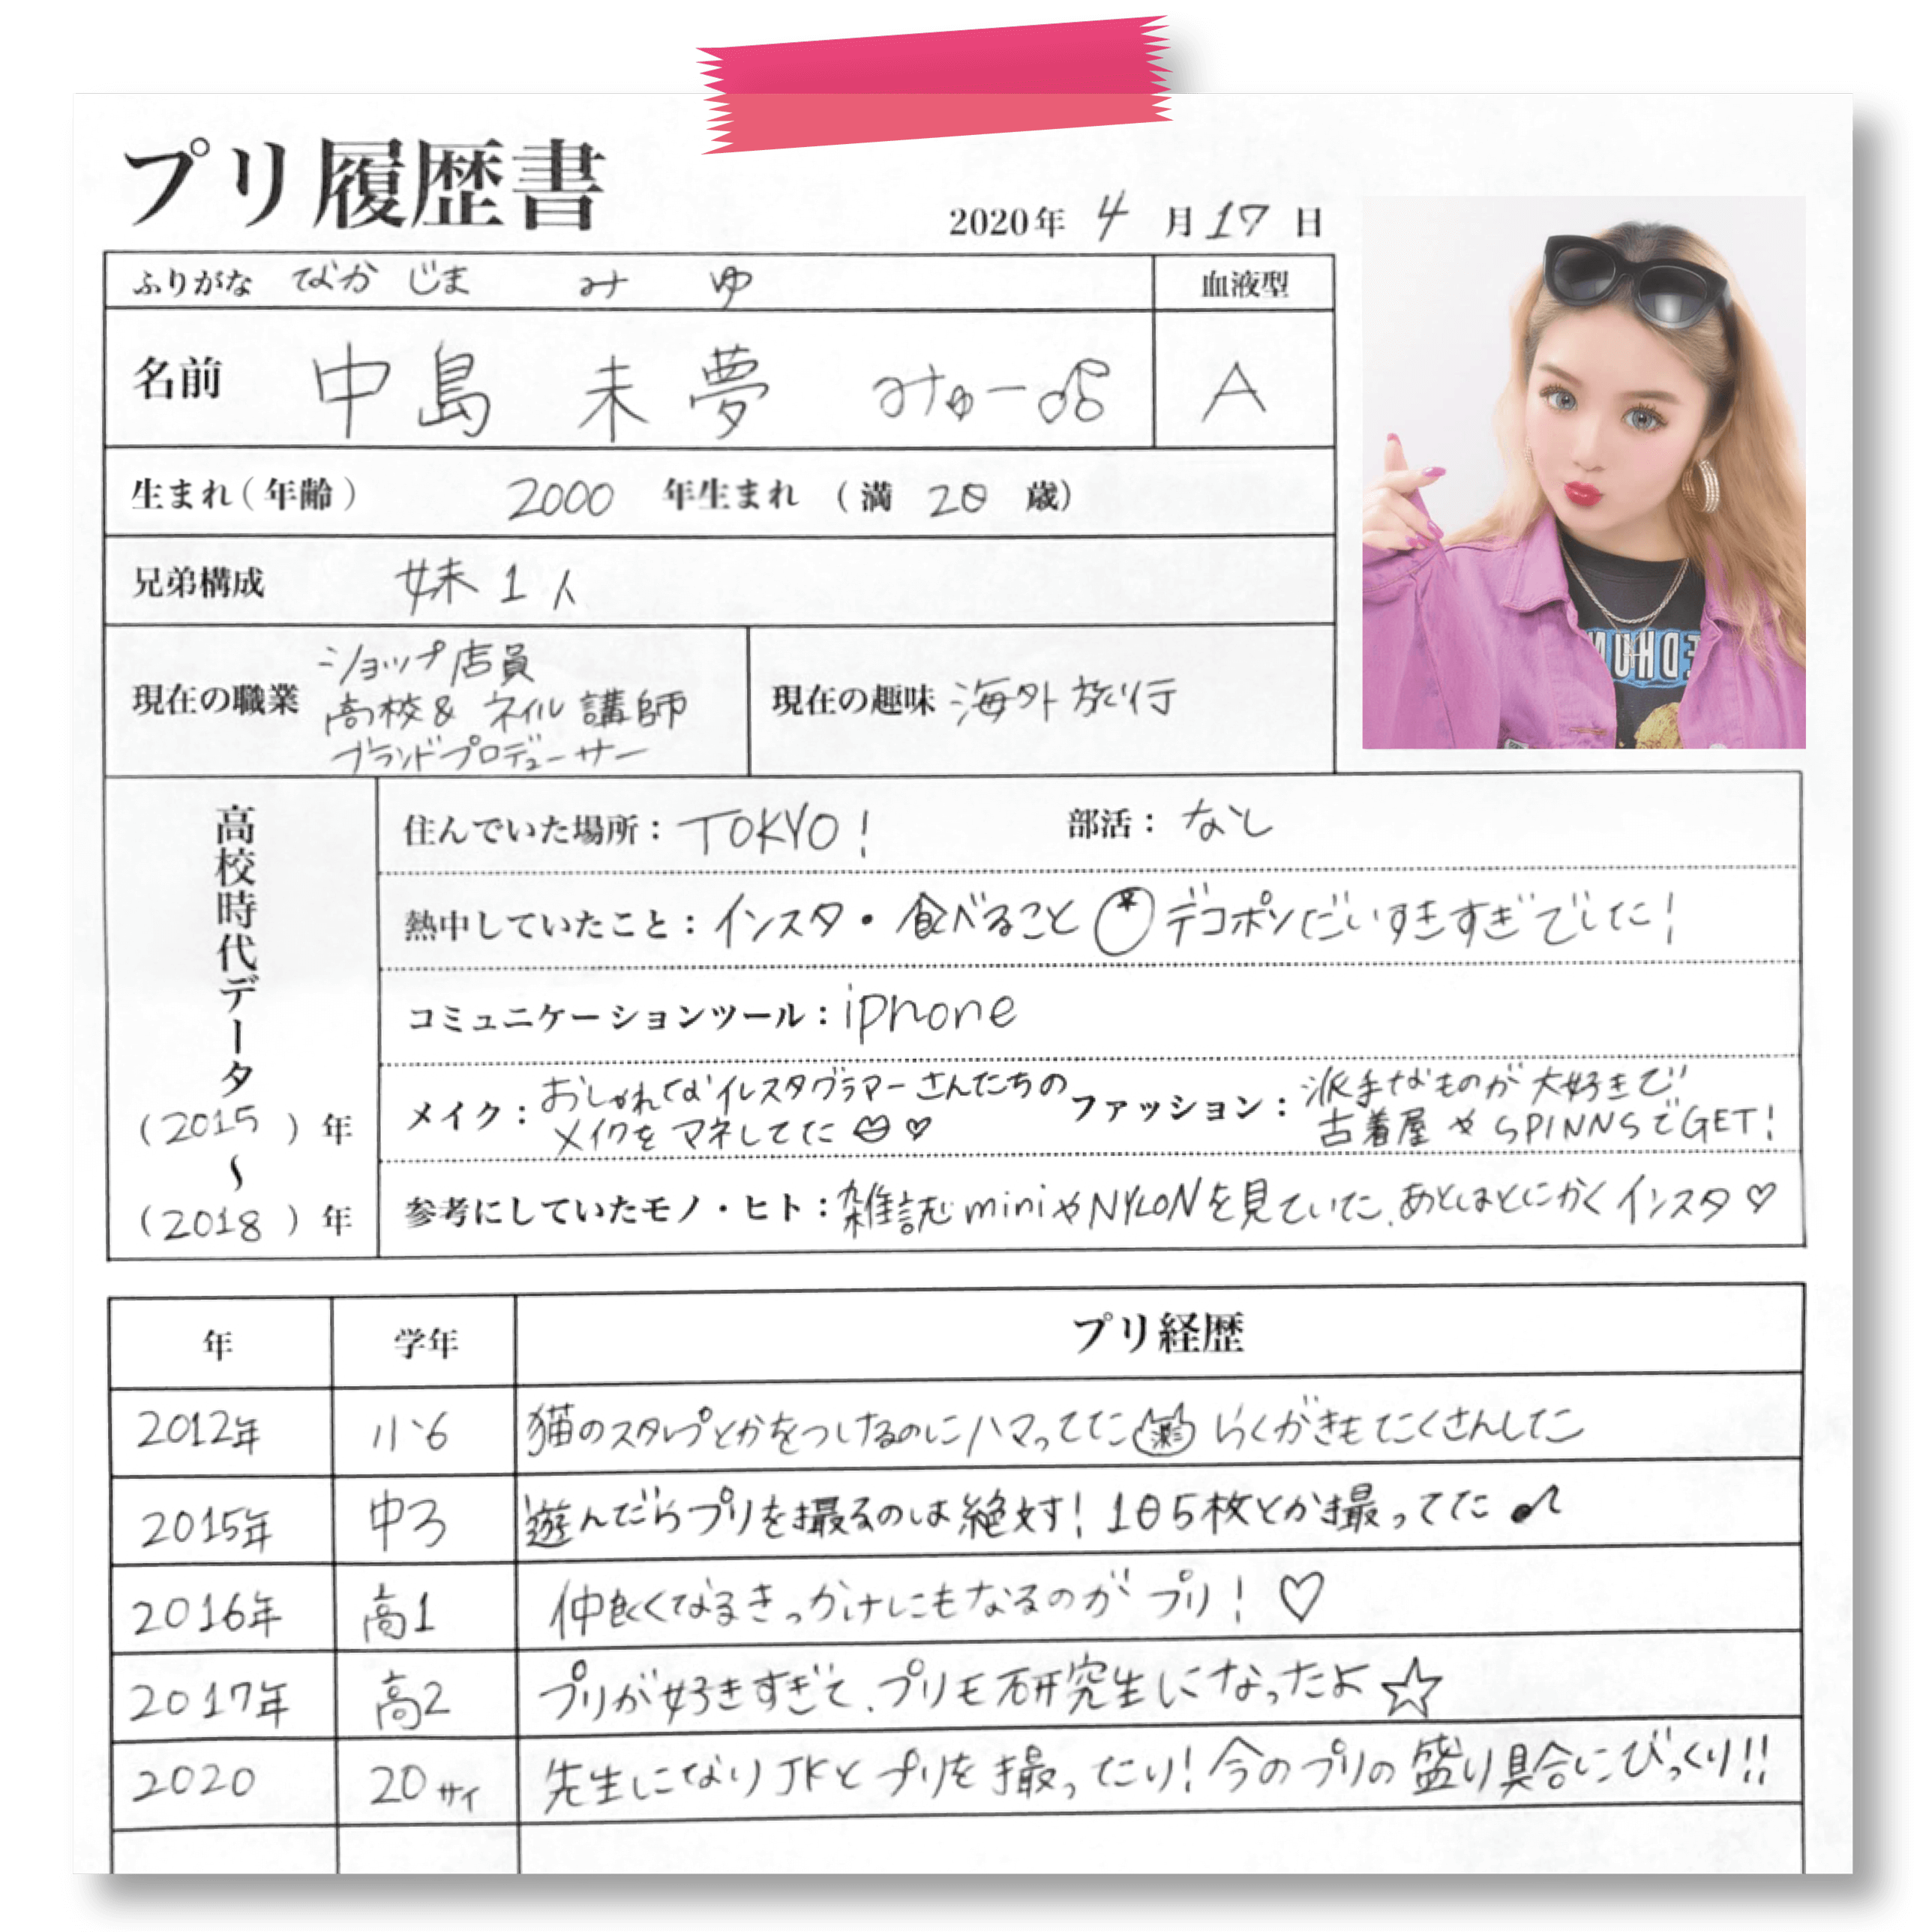 プリ履歴書
2020年 4 月 17 日
ふりがな なかじま みゆ
血液型
名前 中島 未夢 みゅー
A
生まれ(年齢) 2000 年生まれ (満 20 歳)
兄弟構成 妹1人
現在の職業 ショップ店員
高校&ネイル講師
ブランドプロデューサー
現在の趣味 海外旅行
高校時代データ
(2015)年
〜
(2018)年
住んでいた場所：TOKYO!
部活：なし
熱中していたこと：インスタ・食べること デコポンだいすきすぎでした!
コミュニケーションツール：iphone
メイク：おしゃれなインスタグラマーさんたちの
メイクをマネしてた♡
ファッション：派手なものが大好きで
古着屋やSPINNSでGET!
参考にしていたモノ・ヒト：雑誌miniやNYLONを見ていた、あとはとにかくインスタ♡
年 学年 プリ経歴
2012年 小6 猫のスタンプとかをつけるのにハマってた らくがきもたくさんした
2015年 中3 遊んだらプリを撮るのは絶対! 1日5枚とか撮ってた♪
2016年 高1 仲良くなるきっかけにもなるのがプリ!♡
2017年 高2 プリが好きすぎて、プリモ研究生になったよ☆
2020 20サイ 先生になりJKとプリを撮ったり! 今のプリの盛り具合にびっくり!!